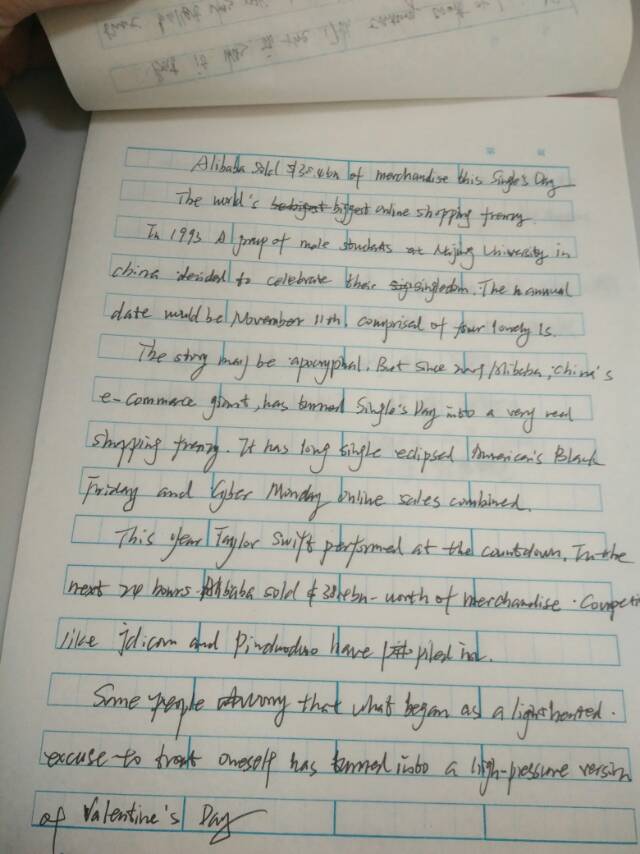 Alibaba sold $38.4bn of merchandise this Single's Day
The world's biggest online shopping frenzy.
In 1993 A group of male students at Nanjing University in
china decided to celebrate their singledom. The annual
date would be November 11th, comprised of four lonely 1s.
The story may be apocryphal. But since 2009 Alibaba, China's
e-commerce giant, has turned Single's Day into a very real
shopping frenzy. It has long single eclipsed American's Black
Friday and Cyber Monday online sales combined.
This year Taylor Swift performed at the countdown. In the
next 24 hours Alibaba sold $38.4bn-worth of merchandise. Competi
like jd.com and Pinduoduo have piled in.
Some people worry that what began as a lighthearted.
excuse to treat oneself has turned into a high-pressure version
of Valentine's Day